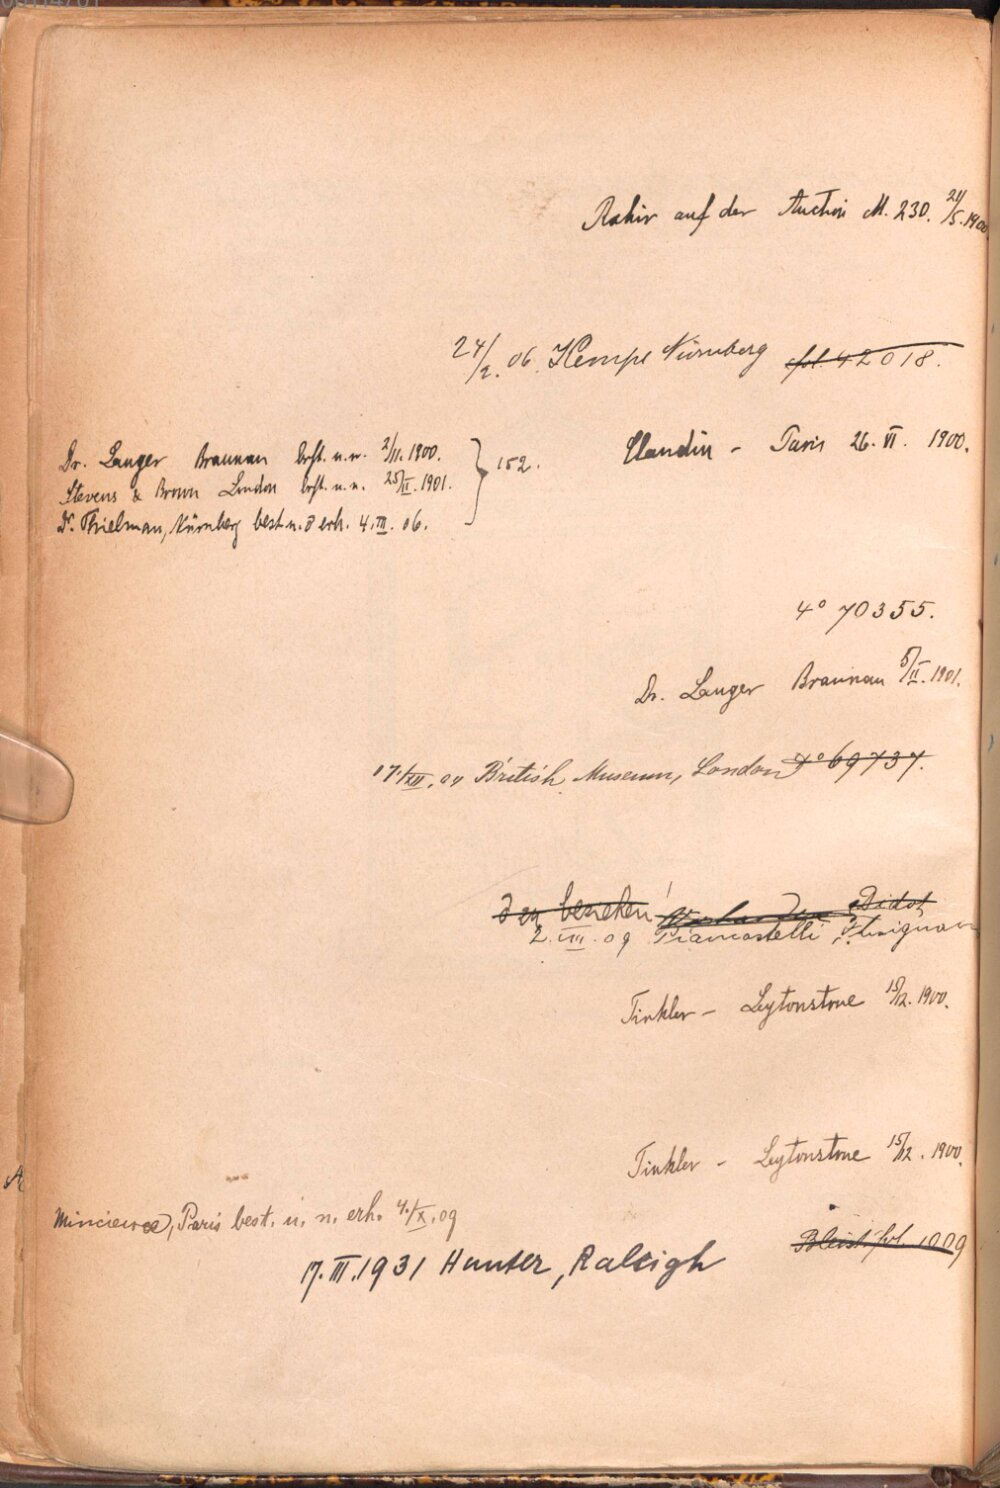 Rahir auf der Auction M. 230. 21/5. 1900
24/2. 06. Kempe Nürnberg fol. 42018.
Claudin - Paris 26. VI. 1900.
Dr. Langer Braunau best. u. n. 2/11. 1900.
Stevens & Brown London best. u. n. 25/II. 1901. } 152.
Dr. Thielman, Nürnberg best. u. n. erh. 4. III. 06.
4° 70355.
Dr. Langer Braunau 5/II. 1901.
17./XII. 04 British Museum, London 4° 69737.
beziehen! Didot
2. VIII. 09 Piancastelli, Fusignano
Tinkler - Leytonstone 15/12. 1900.
Tinkler - Leytonstone 15/12. 1900.
Paris best. u. n. erh. 4./X. 09
fol. 1009
17. III. 1931 Hunter, Raleigh